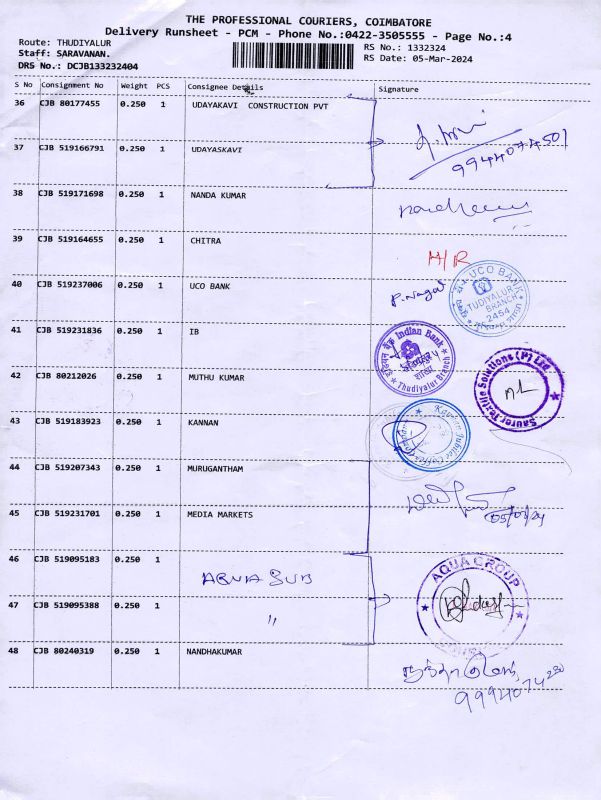 THE PROFESSIONAL COURIERS, COIMBATORE
Delivery Runsheet - PCM - Phone No.:0422-3505555 - Page No.:4
Route: THUDIYALUR
RS No.: 1332324
Staff: SARAVANAN.
RS Date: 05-Mar-2024
DRS No.: DCJB133232404
S No Consignment No Weight PCS Consignee Details Signature
36 CJB 80177455 0.250 1 UDAYAKAVI CONSTRUCTION PVT
37 CJB 519166791 0.250 1 UDAYASKAVI
9944074501
38 CJB 519171698 0.250 1 NANDA KUMAR
39 CJB 519164655 0.250 1 CHITRA
H/R
40 CJB 519237006 0.250 1 UCO BANK
P. Nagal
UCO BANK
TUDIYALUR
BRANCH
2454
41 CJB 519231836 0.250 1 IB
Indian Bank
Thudiyalur Branch
42 CJB 80212026 0.250 1 MUTHU KUMAR
Saurer Textile Solutions (P) Ltd
43 CJB 519183923 0.250 1 KANNAN
44 CJB 519207343 0.250 1 MURUGANTHAM
45 CJB 519231701 0.250 1 MEDIA MARKETS
05/03/24
46 CJB 519095183 0.250 1 AQUA SUB
AQUA GROUP
47 CJB 519095388 0.250 1 "
48 CJB 80240319 0.250 1 NANDHAKUMAR